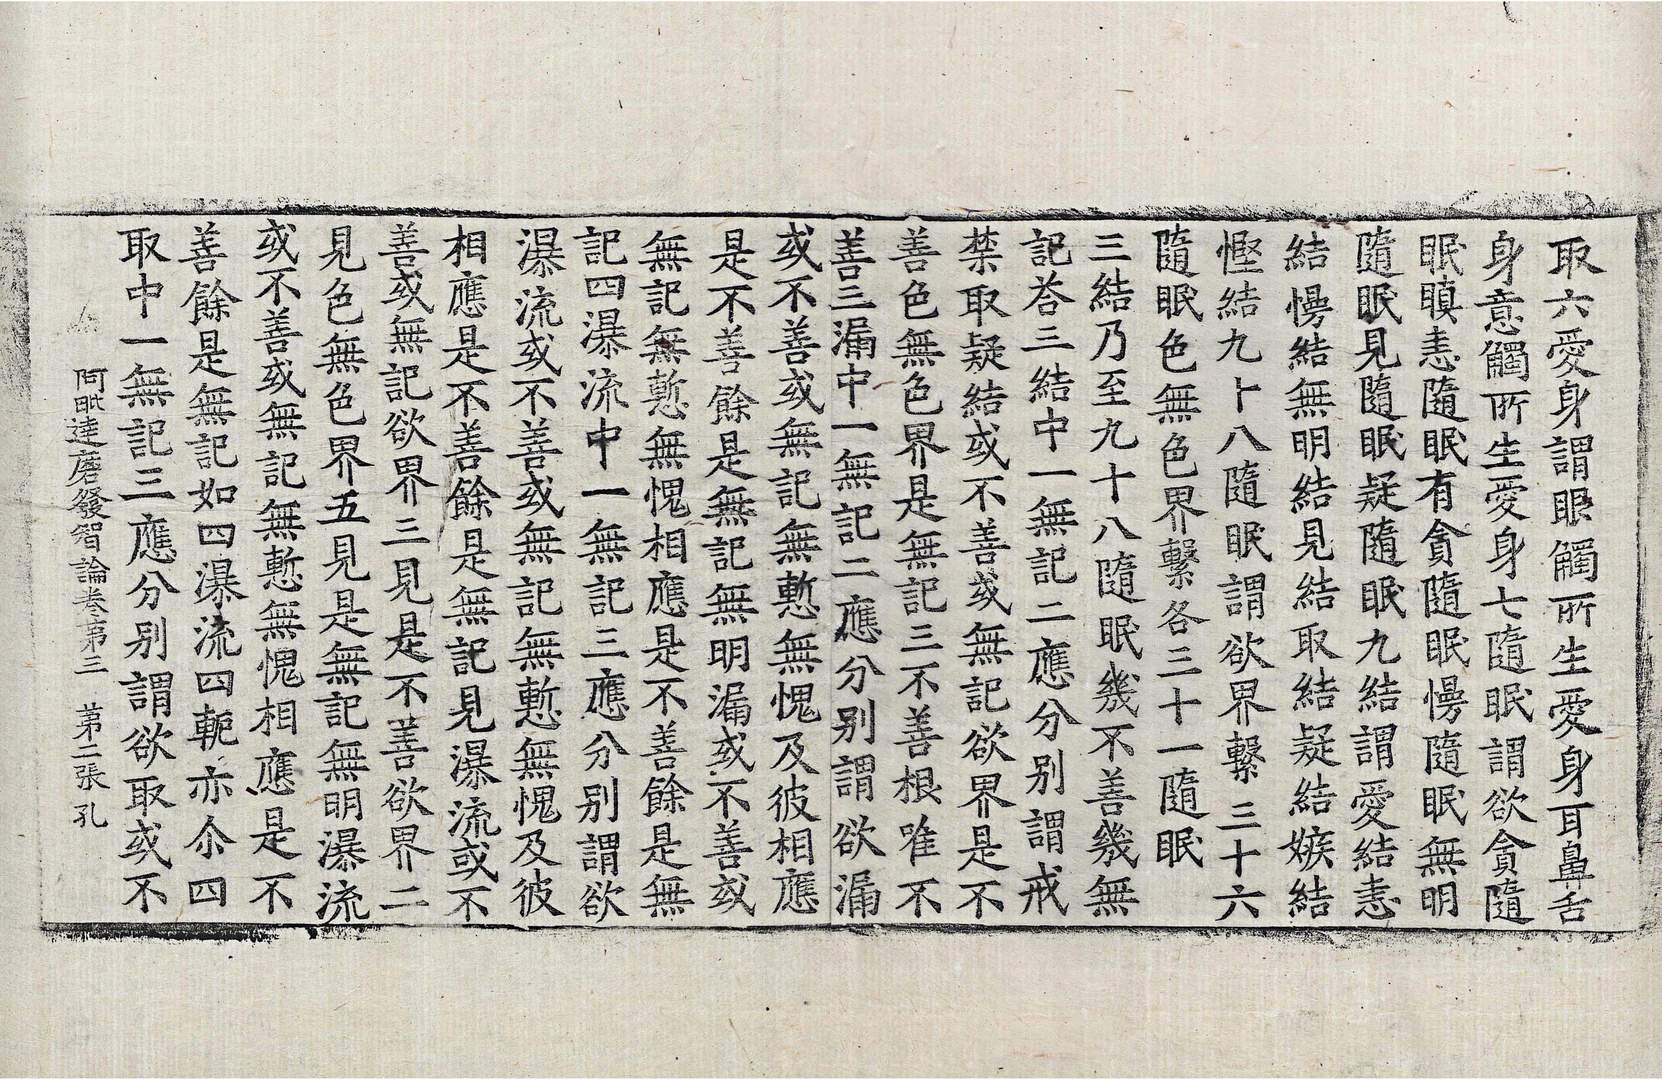 取六愛身謂眼觸所生愛身耳鼻舌
身意觸所生愛身七隨眠謂欲貪隨
眠瞋恚隨眠有貪隨眠慢隨眠無明
隨眠見隨眠疑隨眠九結謂愛結恚
結慢結無明結見結取結疑結嫉結
慳結九十八隨眠謂欲界繫三十六
隨眠色無色界繫各三十一隨眠
三結乃至九十八隨眠幾不善幾無
記荅三結中一無記二應分別謂戒
禁取疑結或不善或無記欲界是不
善色無色界是無記三不善根唯不
善三漏中一無記二應分別謂欲漏
或不善或無記無慙無愧及彼相應
是不善餘是無記無明漏或不善或
無記無慙無愧相應是不善餘是無
記四瀑流中一無記三應分別謂欲
瀑流或不善或無記無慙無愧及彼
相應是不善餘是無記見瀑流或不
善或無記欲界三見是不善欲界二
見色無色界五見是無記無明瀑流
或不善或無記無慙無愧相應是不
善餘是無記如四瀑流四軛亦尒四
取中一無記三應分別謂欲取或不
阿毗達磨發智論卷第三　第二張　孔